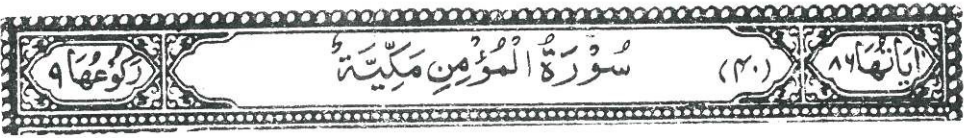 اٰيَاتُهَا ٨٦ (۴۰) سُوْرَةُ الْمُؤْمِنِ مَكِّيَّةٌ رُكُوْعُهَا ٩